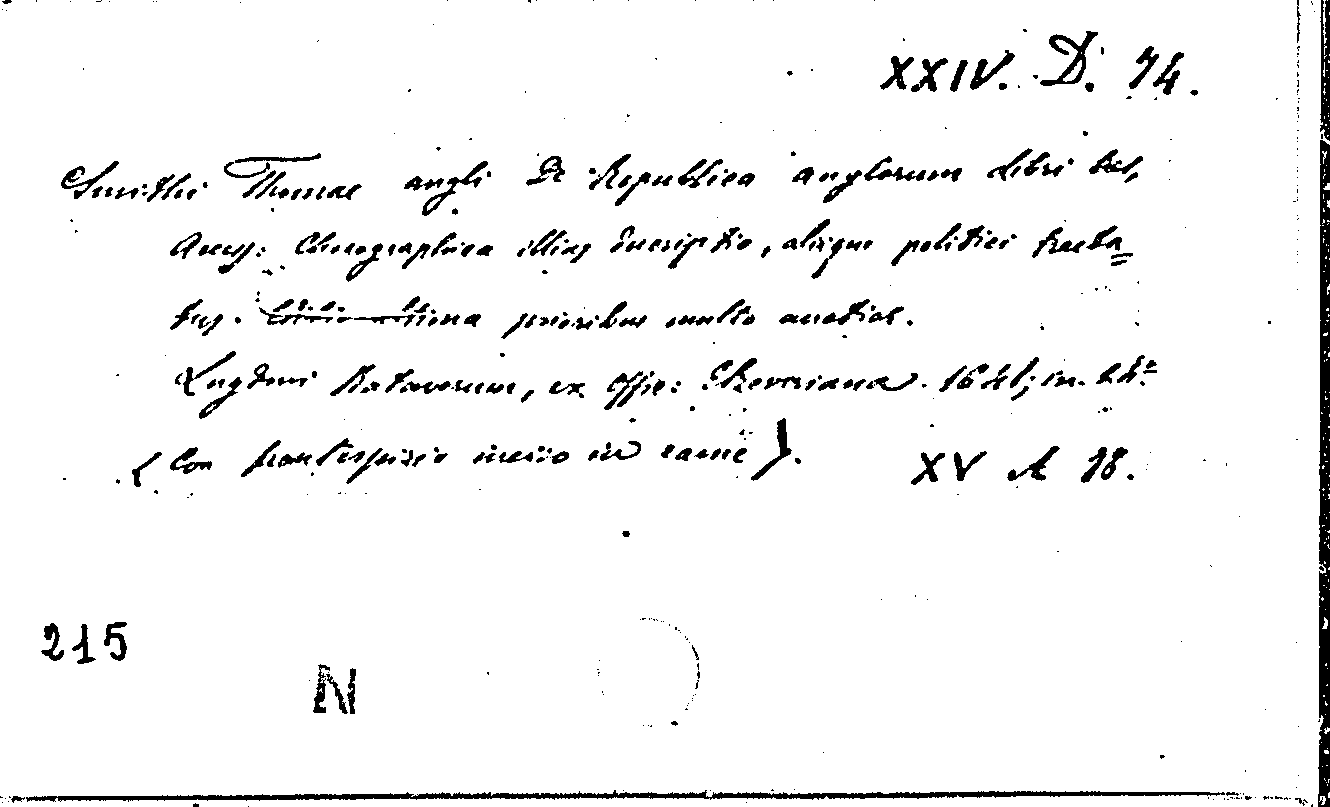 XXIV. D. 74.
Smithi Thomae angli De Republica anglorum Libri tres,
Accesj: Chorographica illius Descriptio, alijque politici tracta=
tus. Editio ultima prioribus multo auctior.
Lugduni Batavorum, ex Offic: Elzeviriana. 1641; in. 24.°
(Con frontespizio inciso in rame). XV A 18.
215
N